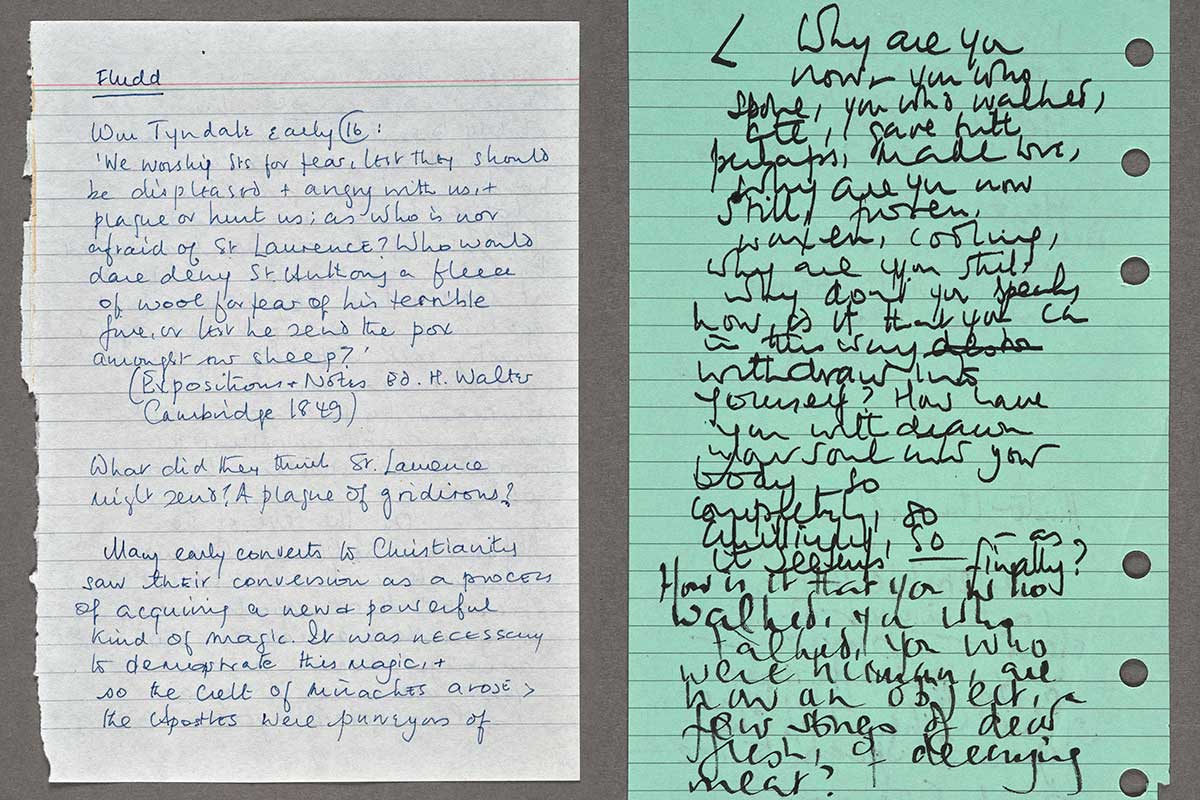 Fludd
Wm Tyndale early 16:
'We worship Sts for fear, lest they should
be displeased + angry with us, +
plague or hurt us; as who is not
afraid of St Laurence? Who would
dare deny St. Anthony a fleece
of wool for fear of his terrible
fire, or lest he send the pox
amongst our sheep?'
(Expositions + Notes Ed. H. Walter
Cambridge 1849)
What did they think St. Laurence
might send? A plague of gridirons?
Many early converts to Christianity
saw their conversion as a process
of acquiring a new & powerful
kind of magic. It was necessary
to demonstrate this magic, +
so the cult of miracles arose >
the Apostles were purveyors of
Why are you
now you who
spoke, you who walked,
ate, gave birth
perhaps, made love,
Why are you now
still, frozen,
waxen, cooling,
why are you still,
why don't you speak,
how is it that you can
in this way
withdraw into
yourself? How have
you withdrawn
your soul into your
body so
completely, so
so – as
it seems – finally?
How is it that you who
walked, you who
talked, you who
were human, are
now an object, a
few stones of dead
flesh, of decaying
meat?